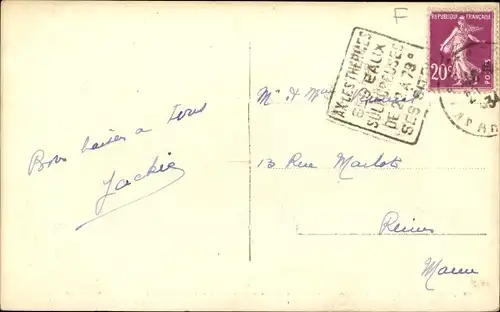 F
RÉPUBLIQUE FRANÇAISE
20c
POSTES
AX-LES-THERMES
EAUX
SULFUREUSES
DE A 78°
SES
Bons baisers à tous
Jackie
Mr & Mme
13 Rue Marlot
Reims
Marne